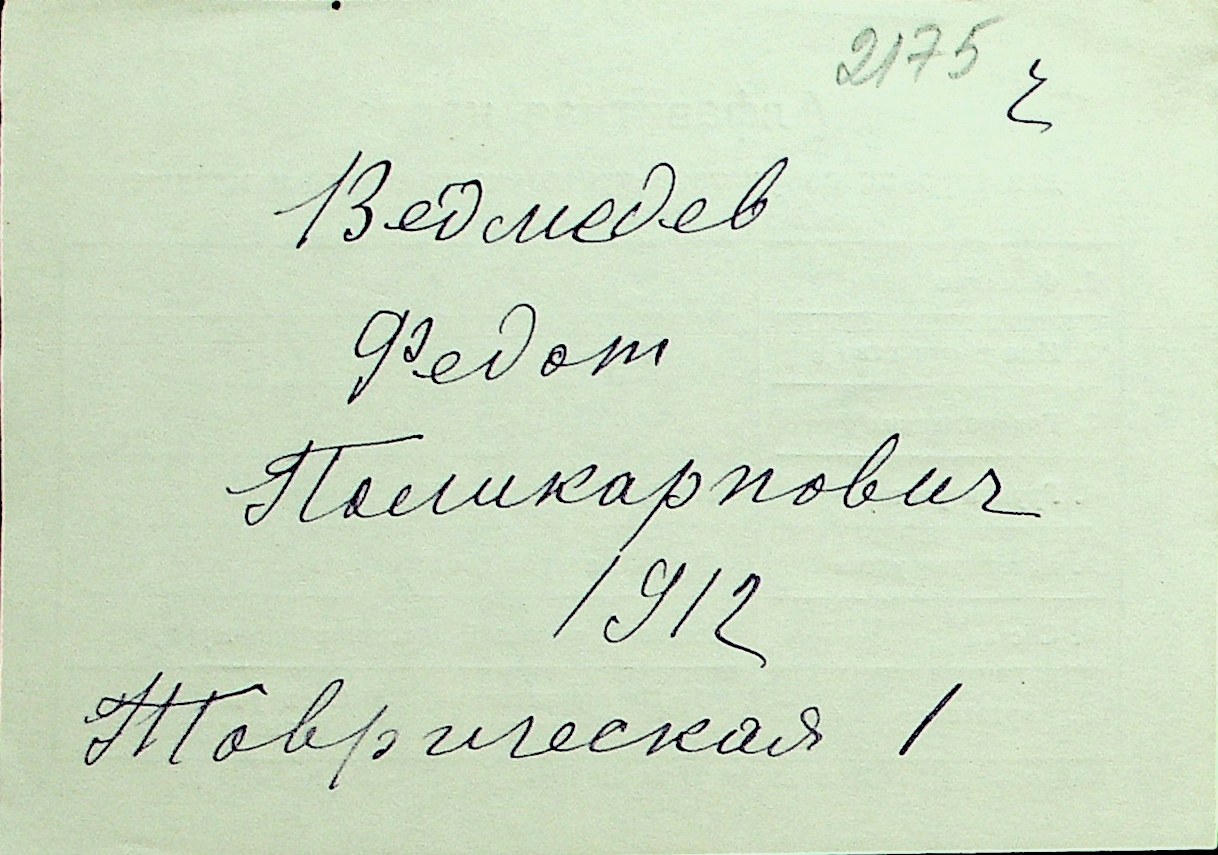 2175
Ведмедев
Федот
Поликарпович
1912
Таврическая 1